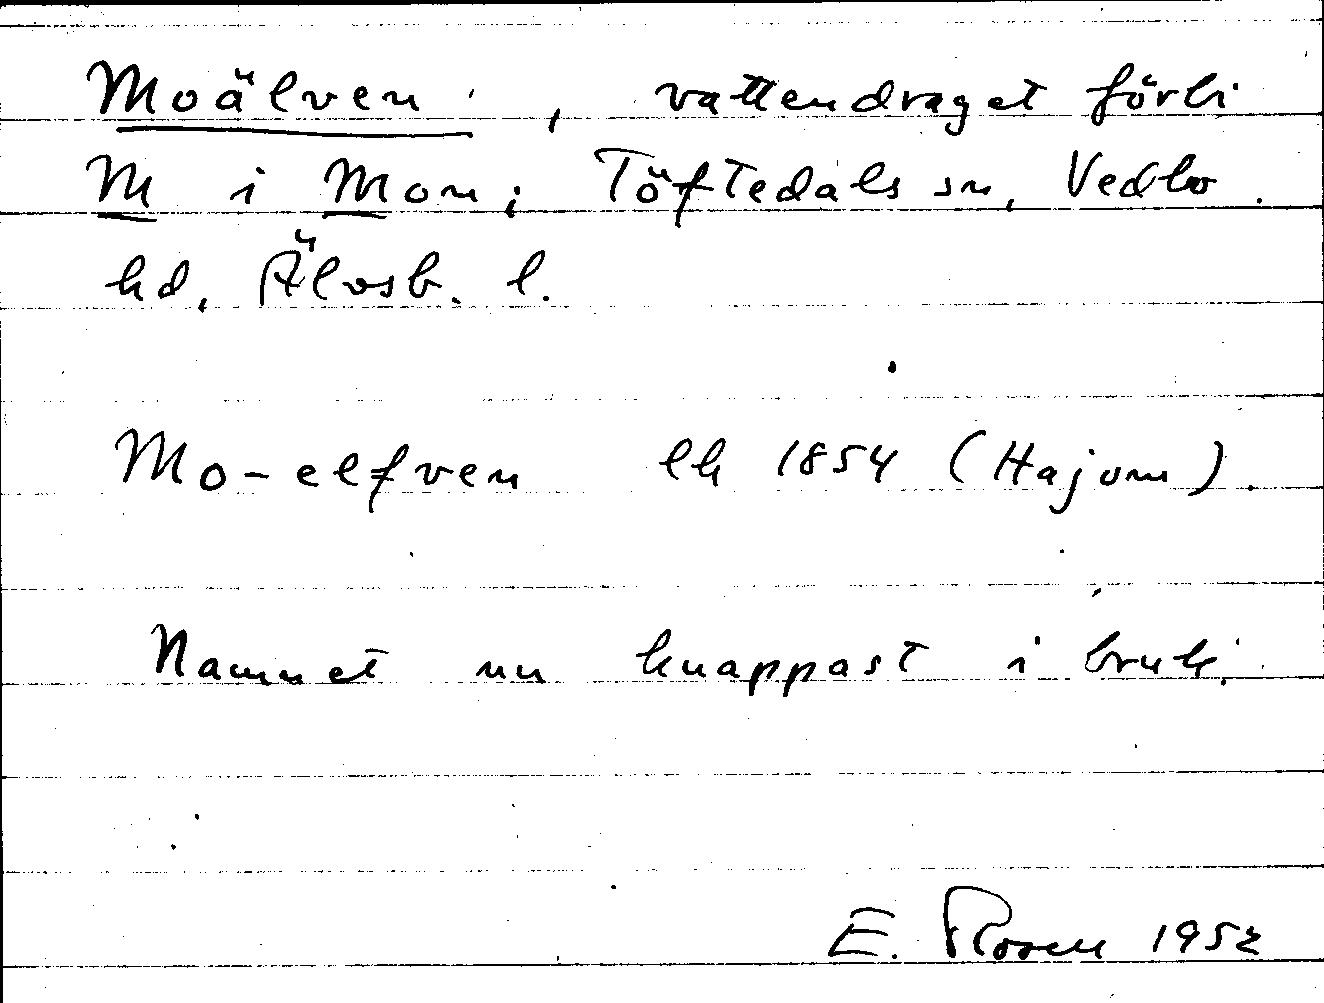 Moälven, vattendraget förbi
M i Mon; Töftedals sn, Vedbo
hd, Älvsb. l.
Mo-elfven lk 1854 (Hajom).
Namnet nu knappast i bruk.
E. Rosen 1952